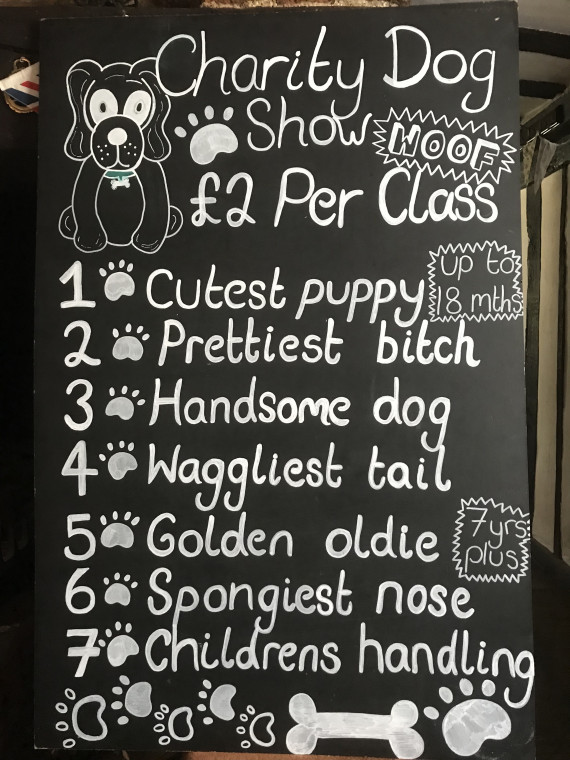 Charity Dog
Show WOOF
£2 Per Class
1 Cutest puppy up to 18 mths
2 Prettiest bitch
3 Handsome dog
4 Waggliest tail
5 Golden oldie 7yrs plus
6 Spongiest nose
7 Childrens handling